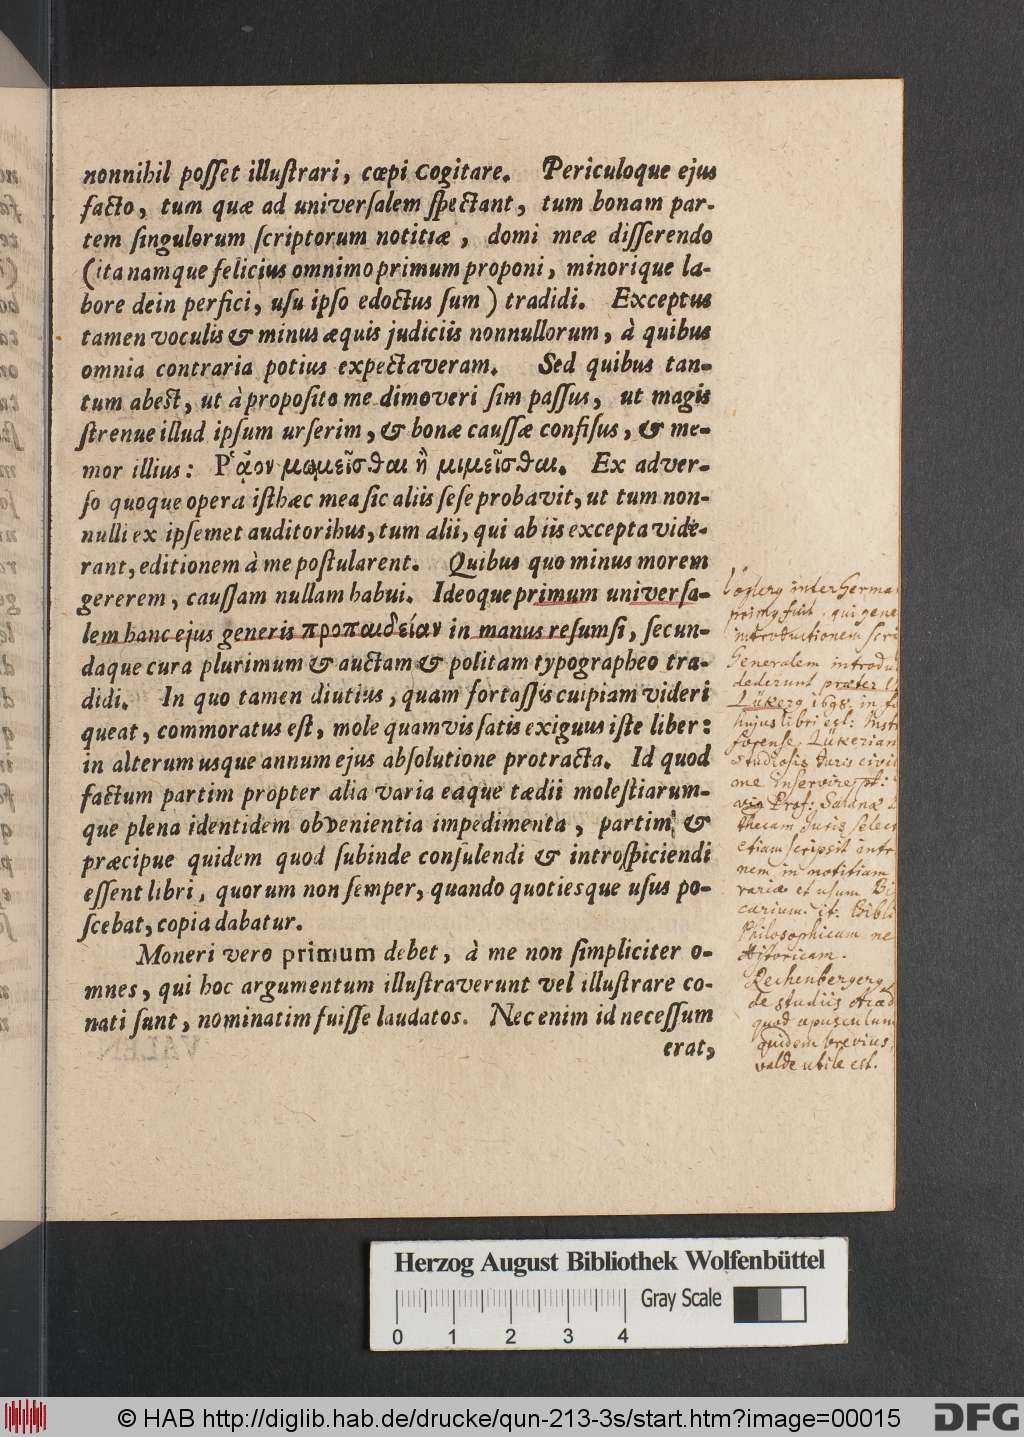 nonnihil poſſet illuſtrari, cœpi cogitare. Periculoque ejus
facto, tum quæ ad univerſalem ſpectant, tum bonam par-
tem ſingulorum ſcriptorum notitiæ, domi meæ diſſerendo
(ita namque felicius omnimo primum proponi, minorique la-
bore dein perfici, uſu ipſo edoctus ſum) tradidi. Exceptus
tamen voculis & minus æquis judiciis nonnullorum, à quibus
omnia contraria potius expectaveram. Sed quibus tan-
tum abeſt, ut à propoſito me dimoveri ſim paſſus, ut magis
ſtrenue illud ipſum urſerim, & bonæ cauſſæ confiſus, & me-
mor illius: Ρ῾ᾷον μωμεῖσθαι ἢ μιμεῖσθαι. Ex adver-
ſo quoque opera iſthæc mea ſic aliis ſeſe probavit, ut tum non-
nulli ex ipſemet auditoribus, tum alii, qui ab iis excepta vide-
rant, editionem à me poſtularent. Quibus quo minus morem
gererem, cauſſam nullam habui. Ideoque primum univerſa-
lem hanc ejus generis προπαιδείαν in manus reſumſi, ſecun-
daque cura plurimum & auctam & politam typographeo tra-
didi. In quo tamen diutius, quam fortaſſis cuipiam videri
queat, commoratus eſt, mole quamvis ſatis exiguus iſte liber:
in alterum usque annum ejus abſolutione protracta. Id quod
factum partim propter alia varia eaque tædii moleſtiarum-
que plena identidem obvenientia impedimenta, partim &
præcipue quidem quod ſubinde conſulendi & introſpiciendi
eſſent libri, quorum non ſemper, quando quotiesque uſus po-
ſcebat, copia dabatur.
Moneri vero primum debet, à me non ſimpliciter o-
mnes, qui hoc argumentum illuſtraverunt vel illuſtrare co-
nati ſunt, nominatim fuiſſe laudatos. Nec enim id neceſſum
erat,
inter Germa
fuit qui gene
introductionem ſcri
Generalem introdu
dederunt præter
Lükerg 1698. in
hujus libri est:
forense. Lükerian
Studiosis Juris civil
me inservire pt:
Prof:
thecam Juris selec
etiam scripsit intr
nem in notitiam
variæ et usum
carium. it. Bibli
Philosophicam
Historicam.
Rechenbergerg
de studiis
quod opusculum
quidem brevius,
valde utile est.
Herzog August Bibliothek Wolfenbüttel
Gray Scale
0 1 2 3 4
© HAB http://diglib.hab.de/drucke/qun-213-3s/start.htm?image=00015
DFG